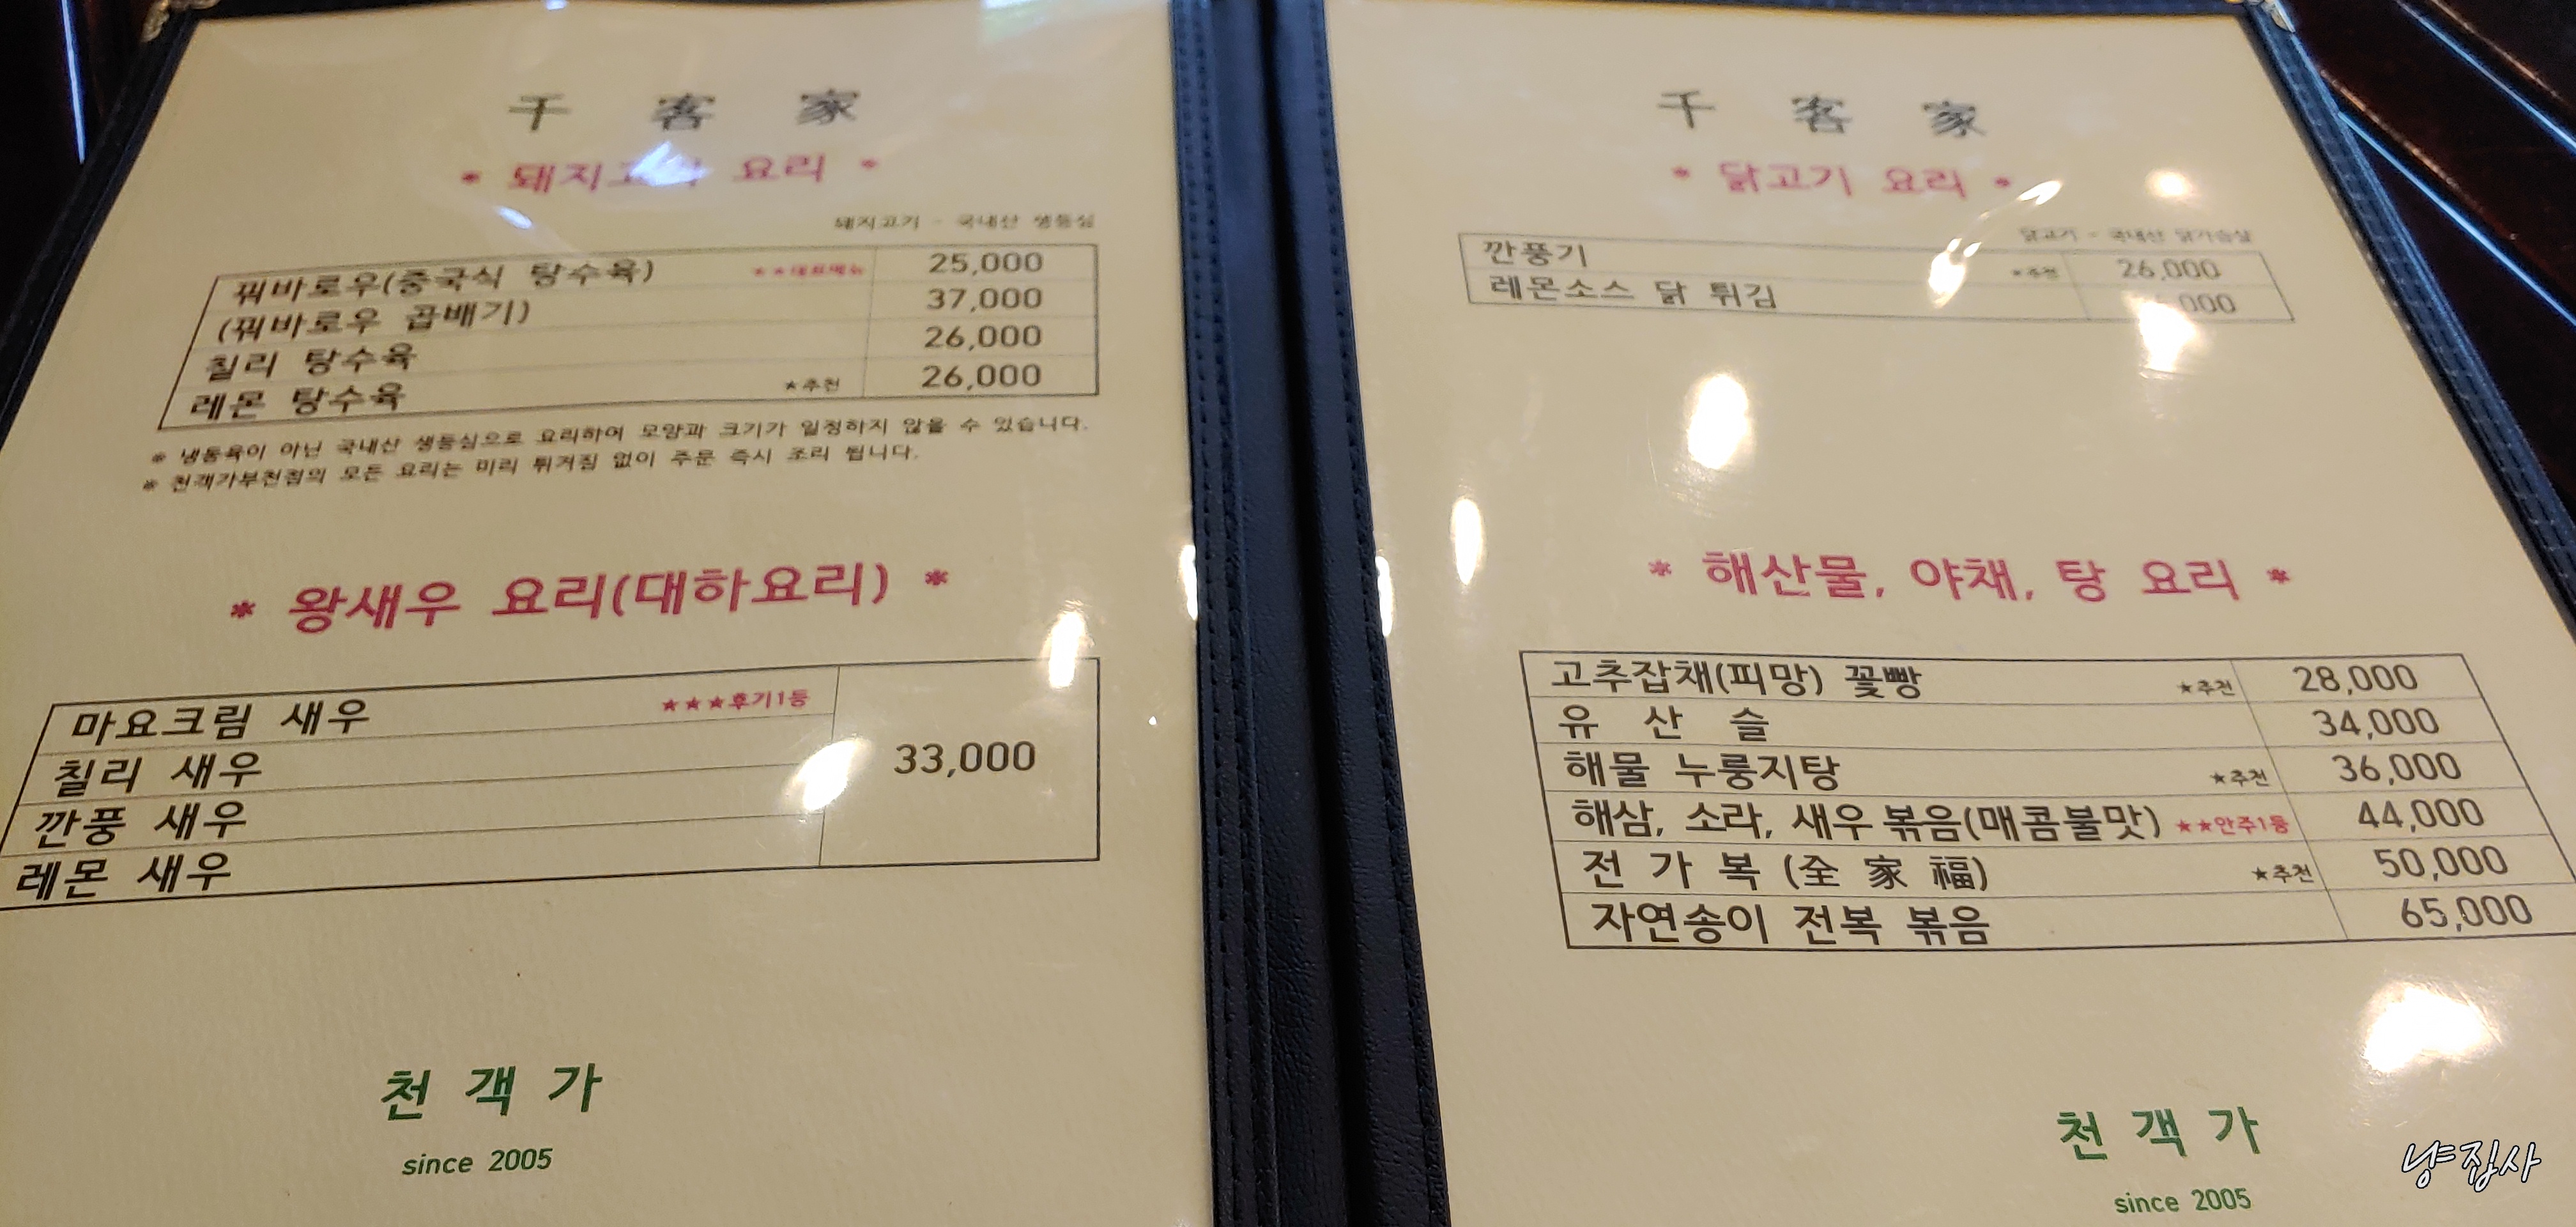 千 客 家
* 돼지고기 요리 *
돼지고기 - 국내산 생등심
꿔바로우(중국식 탕수육) ★★대표메뉴 25,000
(꿔바로우 곱배기) 37,000
칠리 탕수육 26,000
레몬 탕수육 ★추천 26,000
※ 냉동육이 아닌 국내산 생등심으로 요리하여 모양과 크기가 일정하지 않을 수 있습니다.
※ 천객가부천점의 모든 요리는 미리 튀겨짐 없이 주문 즉시 조리 됩니다.
* 왕새우 요리(대하요리) *
마요크림 새우 ★★★후기1등
칠리 새우
깐풍 새우
레몬 새우
33,000
천 객 가
since 2005
千 客 家
* 닭고기 요리 *
닭고기 - 국내산 닭가슴살
깐풍기 ★추천 26,000
레몬소스 닭 튀김
* 해산물, 야채, 탕 요리 *
고추잡채(피망) 꽃빵 ★추천 28,000
유 산 슬 34,000
해물 누룽지탕 ★추천 36,000
해삼, 소라, 새우 볶음(매콤불맛) ★★안주1등 44,000
전 가 복 (全 家 福) ★추천 50,000
자연송이 전복 볶음 65,000
천 객 가
since 2005
냥집사